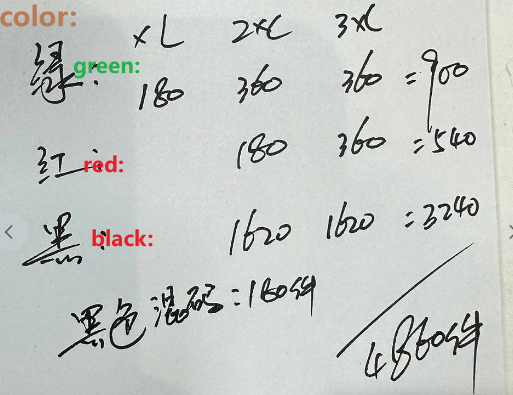 color:
XL 2XL 3XL
绿: green: 180 360 360 =900
红: red: 180 360 =540
黑: black: 1620 1620 =3240
黑色混码:180件
4860件